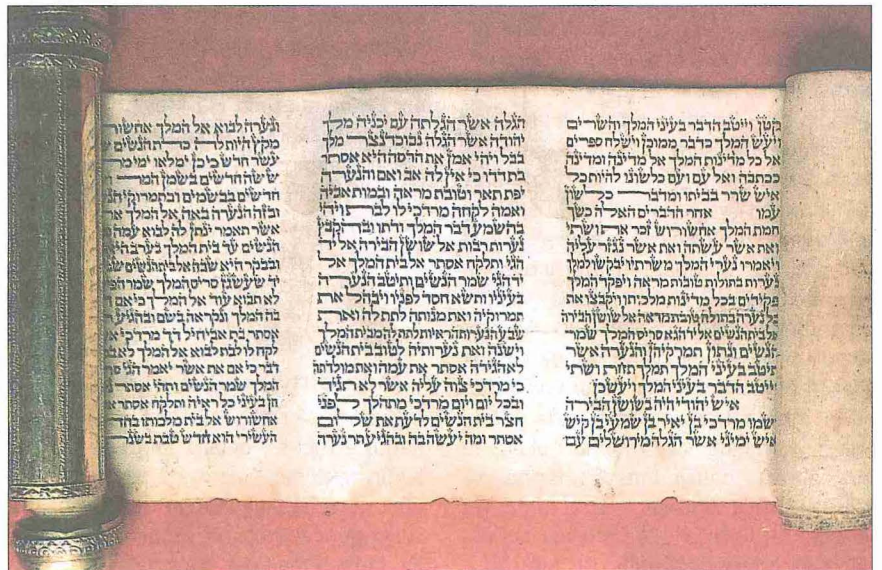 קטן וייטב הדבר בעיני המלך והשרים
ויעש המלך כדבר ממוכן וישלח ספרים
אל כל מדינות המלך אל מדינה ומדינה
ככתבה ואל עם ועם כלשונו להיות כל
איש שרר בביתו ומדבר כלשון
עמו אחר הדברים האלה כשך
חמת המלך אחשורוש זכר את ושתי
ואת אשר עשתה ואת אשר נגזר עליה
ויאמרו נערי המלך משרתיו יבקשו למלך
נערות בתולות טובות מראה ויפקד המלך
פקידים בכל מדינות מלכותו ויקבצו את
כל נערה בתולה טובת מראה אל שושן הבירה
אל בית הנשים אל יד הגא סריס המלך שמר
הנשים ונתון תמרקיהן והנערה אשר
תיטב בעיני המלך תמלך תחת ושתי
וייטב הדבר בעיני המלך ויעש כן
איש יהודי היה בשושן הבירה
ושמו מרדכי בן יאיר בן שמעי בן קיש
איש ימיני אשר הגלה מירושלים עם
הגלה אשר הגלתה עם יכניה מלך
יהודה אשר הגלה נבוכדנצר מלך
בבל ויהי אמן את הדסה היא אסתר
בת דדו כי אין לה אב ואם והנערה
יפת תאר וטובת מראה ובמות אביה
ואמה לקחה מרדכי לו לבת ויהי
בהשמע דבר המלך ודתו ובהקבץ
נערות רבות אל שושן הבירה אל יד
הגי ותלקח אסתר אל בית המלך אל
יד הגי שמר הנשים ותיטב הנערה
בעיניו ותשא חסד לפניו ויבהל את
תמרוקיה ואת מנותה לתת לה ואת
שבע הנערות הראיות לתת לה מבית המלך
וישנה ואת נערותיה לטוב בית הנשים
לא הגידה אסתר את עמה ואת מולדתה
כי מרדכי צוה עליה אשר לא תגיד
ובכל יום ויום מרדכי מתהלך לפני
חצר בית הנשים לדעת את שלום
אסתר ומה יעשה בה ובהגיע תר נערה
ונערה לבוא אל המלך אחשור
מקץ היות לה כדת הנשים
עשר חדש כי כן ימלאו ימי
ששה חדשים בשמן המר
חדשים בבשמים ובתמרוקי
ובזה הנערה באה אל המלך
אשר תאמר ינתן לה לבוא עמה
הנשים עד בית המלך בערב היא
ובבקר היא שבה אל בית הנשים
יד שעשגז סריס המלך שמר
לא תבוא עוד אל המלך כי אם
בה המלך ונקראה בשם ובהגיע
אסתר בת אביחיל דד מרדכי
לקח לו לבת לבוא אל המלך לא
דבר כי אם את אשר יאמר הגי
המלך שמר הנשים ותהי אסתר
חן בעיני כל ראיה ותלקח אסתר
אחשורוש אל בית מלכותו בחד
העשירי הוא חדש טבת בשנת